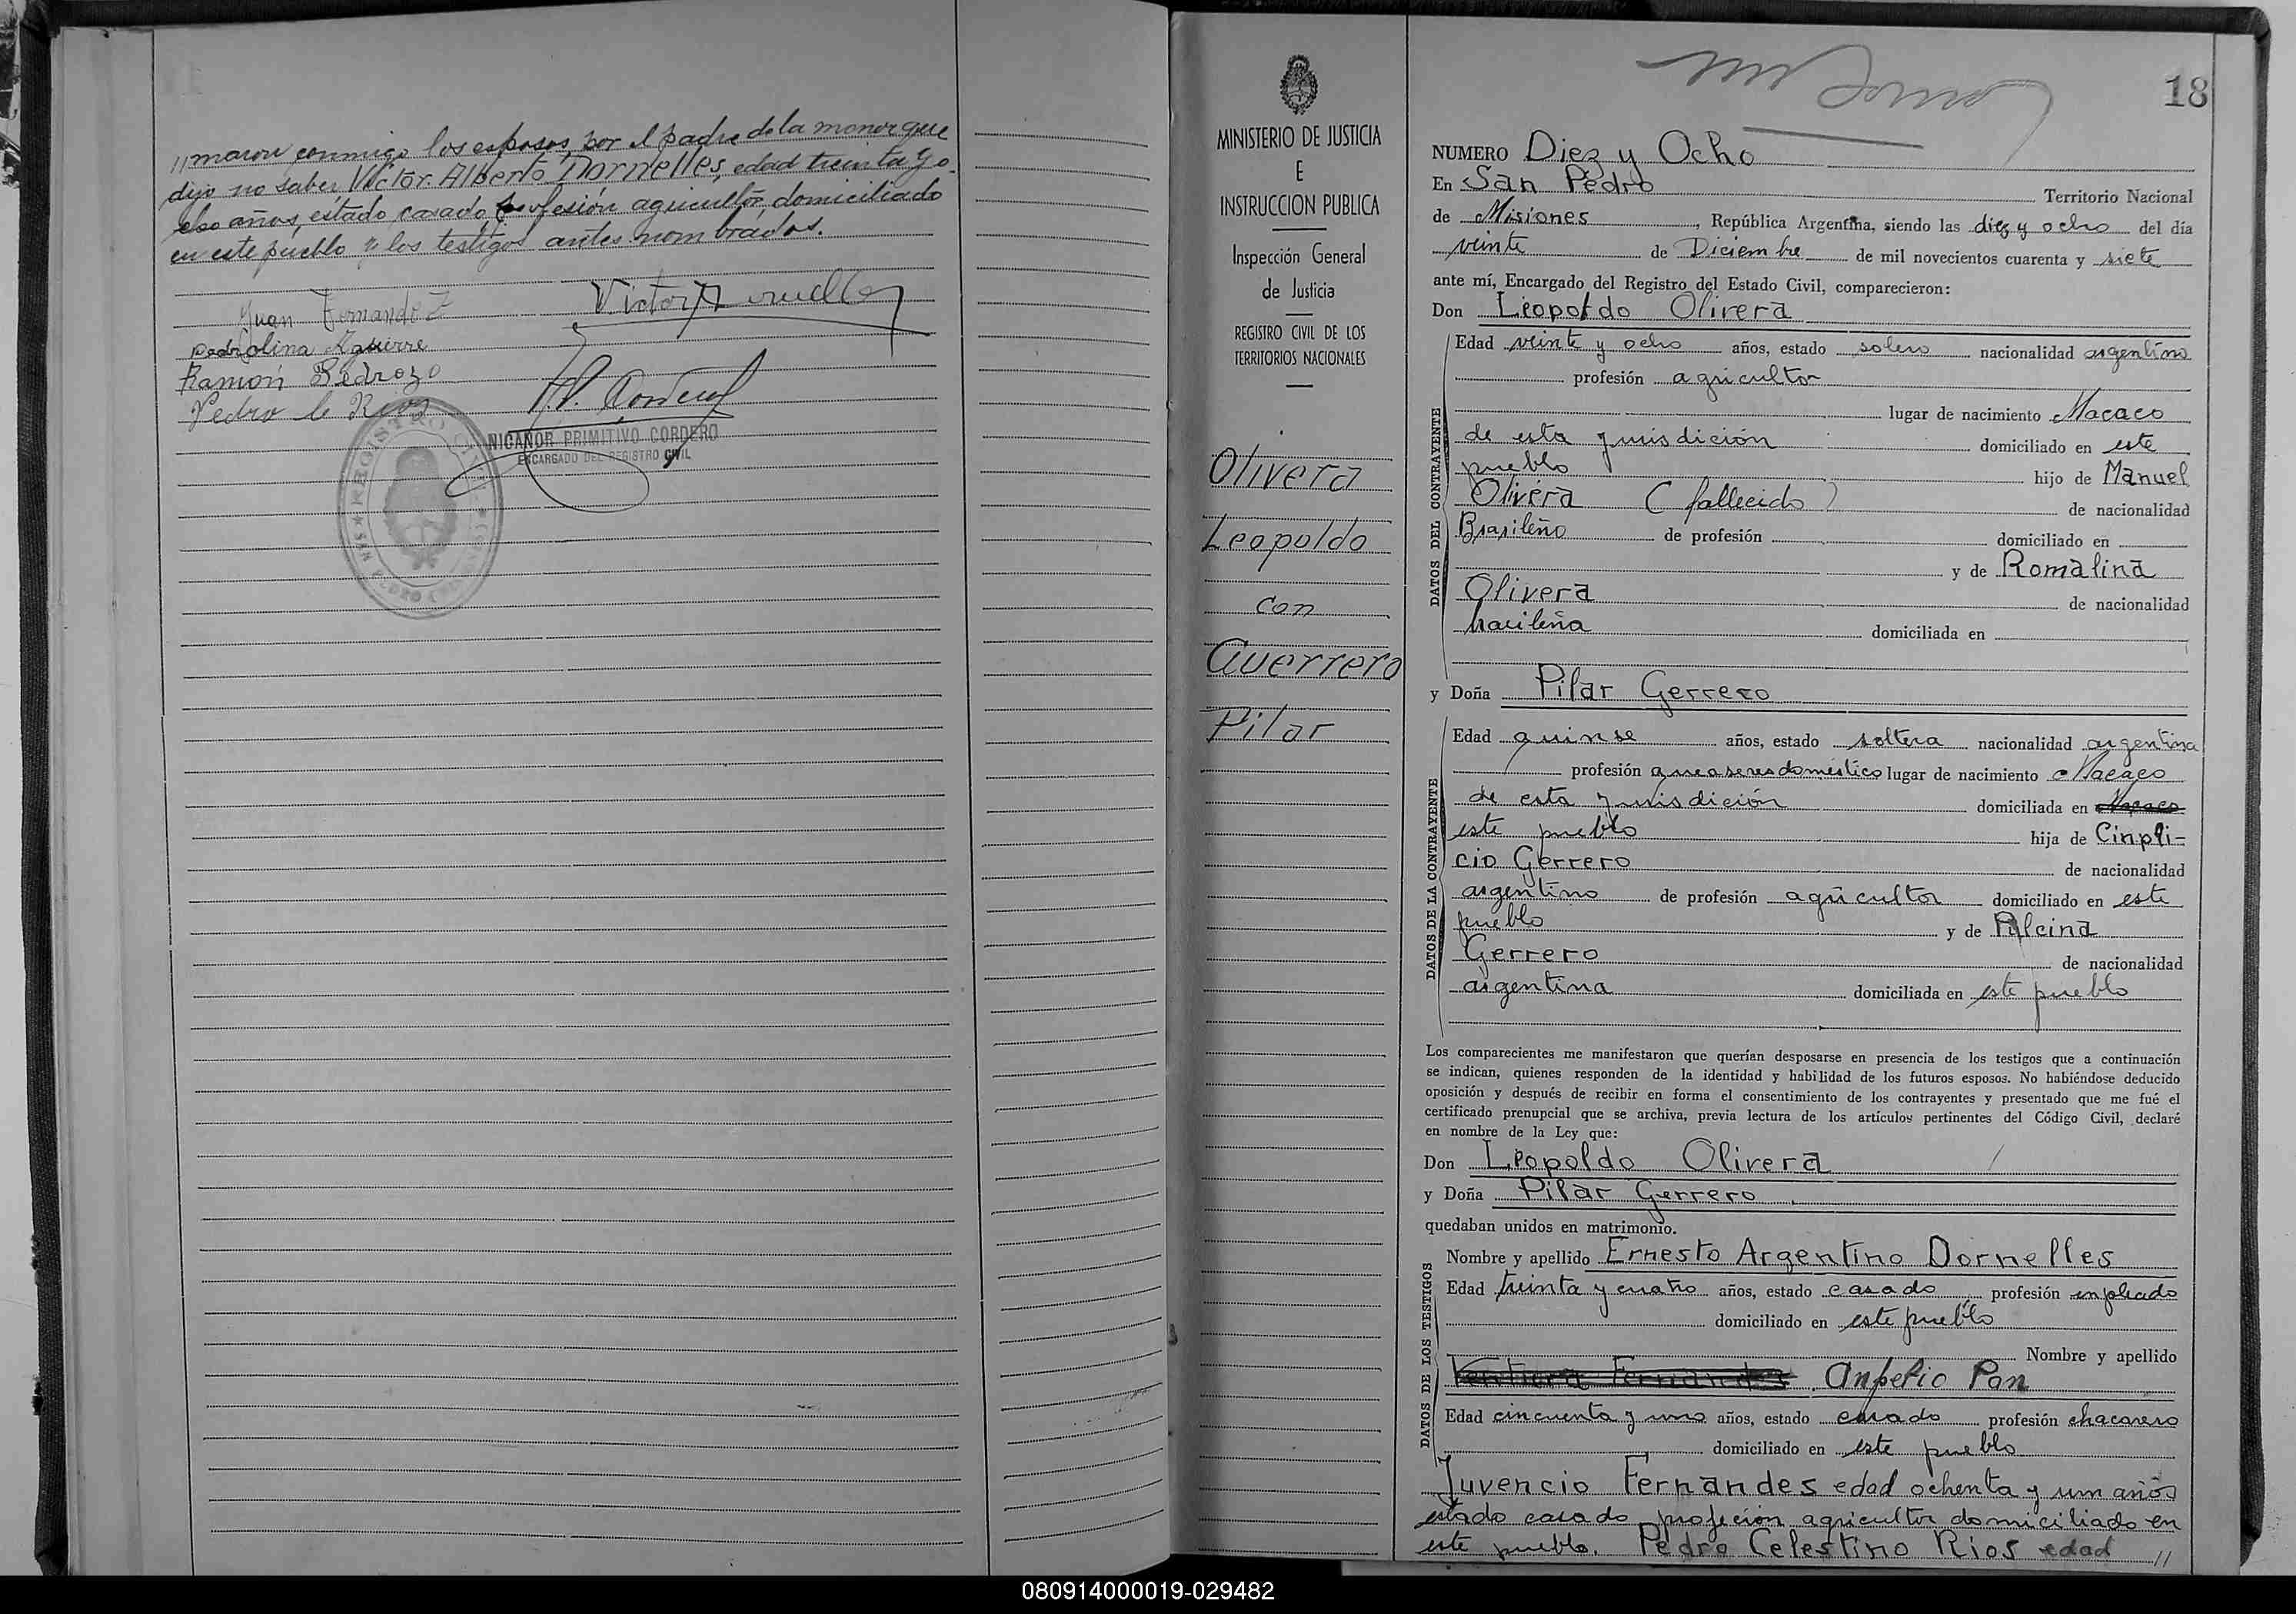 //maron conmigo los esposos, por el padre de la menor que
dijo no saber Victor Alberto Dornelles, edad treinta y o-
cho años, estado casado profesión agricultor, domiciliado
en este pueblo y los testigos antes nombrados.
Juan Fernandez
Pedrolina Aguirre
Ramón Pedrozo
Pedro C Rios
NICANOR PRIMITIVO CORDERO
ENCARGADO DEL REGISTRO CIVIL
REGISTRO CIVIL
MINISTERIO DE JUSTICIA
E
INSTRUCCION PUBLICA
Inspección General
de Justicia
REGISTRO CIVIL DE LOS
TERRITORIOS NACIONALES
Olivera
Leopoldo
con
Guerrero
Pilar
18
NUMERO Diez y Ocho
En San Pedro Territorio Nacional
de Misiones, República Argentina, siendo las diez y ocho del día
veinte de Diciembre de mil novecientos cuarenta y siete
ante mí, Encargado del Registro del Estado Civil, comparecieron:
Don Leopoldo Olivera
DATOS DEL CONTRAYENTE
Edad veinte y ocho años, estado soltero nacionalidad argentino
profesión agricultor
lugar de nacimiento Macaco
de esta jurisdición domiciliado en este
pueblo hijo de Manuel
Olivera (fallecido) de nacionalidad
Brasileño de profesión domiciliado en
y de Romalina
Olivera de nacionalidad
brasileña domiciliada en
y Doña Pilar Gerrero
DATOS DE LA CONTRAYENTE
Edad quinse años, estado soltera nacionalidad argentina
profesión domestico lugar de nacimiento Macaco
de esta jurisdición domiciliada en Macaco
este pueblo hija de Cinpli-
cio Gerrero de nacionalidad
argentino de profesión agricultor domiciliado en este
pueblo y de Alcina
Gerrero de nacionalidad
argentina domiciliada en este pueblo
Los comparecientes me manifestaron que querían desposarse en presencia de los testigos que a continuación
se indican, quienes responden de la identidad y habilidad de los futuros esposos. No habiéndose deducido
oposición y después de recibir en forma el consentimiento de los contrayentes y presentado que me fué el
certificado prenupcial que se archiva, previa lectura de los artículos pertinentes del Código Civil, declaré
en nombre de la Ley que:
Don Leopoldo Olivera
y Doña Pilar Gerrero
quedaban unidos en matrimonio.
DATOS DE LOS TESTIGOS
Nombre y apellido Ernesto Argentino Dornelles
Edad treinta y cuatro años, estado casado profesión enpleado
domiciliado en este pueblo
Nombre y apellido
Anpelio Pan
Edad cincuenta y uno años, estado casado profesión chacarero
domiciliado en este pueblo
Juvencio Fernandes edad ochenta y un años
estado casado profeción agricultor domiciliado en
este pueblo. Pedro Celestino Rios edad //
080914000019-029482